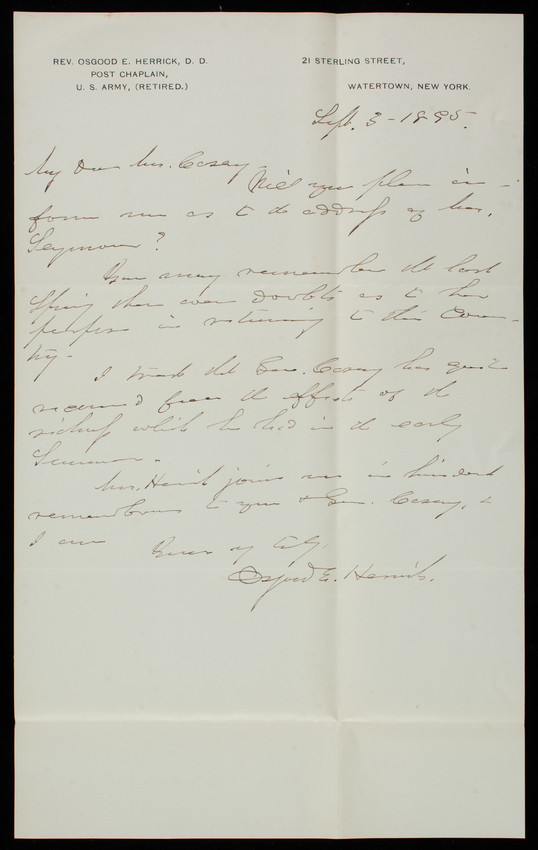 REV. OSGOOD E. HERRICK, D. D.
POST CHAPLAIN,
U. S. ARMY, (RETIRED.)
21 STERLING STREET,
WATERTOWN, NEW YORK.
Sept. 3 - 1895.
My Dear Mrs. Casey -
Will you please in-
form me as to the address of Mrs.
Seymour?
You may remember that last
Spring there were doubts as to her
purpose in returning to this Coun-
try -
I trust that Gen. Casey has quite
recovered from the effects of the
sickness which he had in the early
Summer.
Mrs. Herrick joins me in kindest
remembrances to you & Gen. Casey, &
I am
Yours very truly,
Osgood E. Herrick.